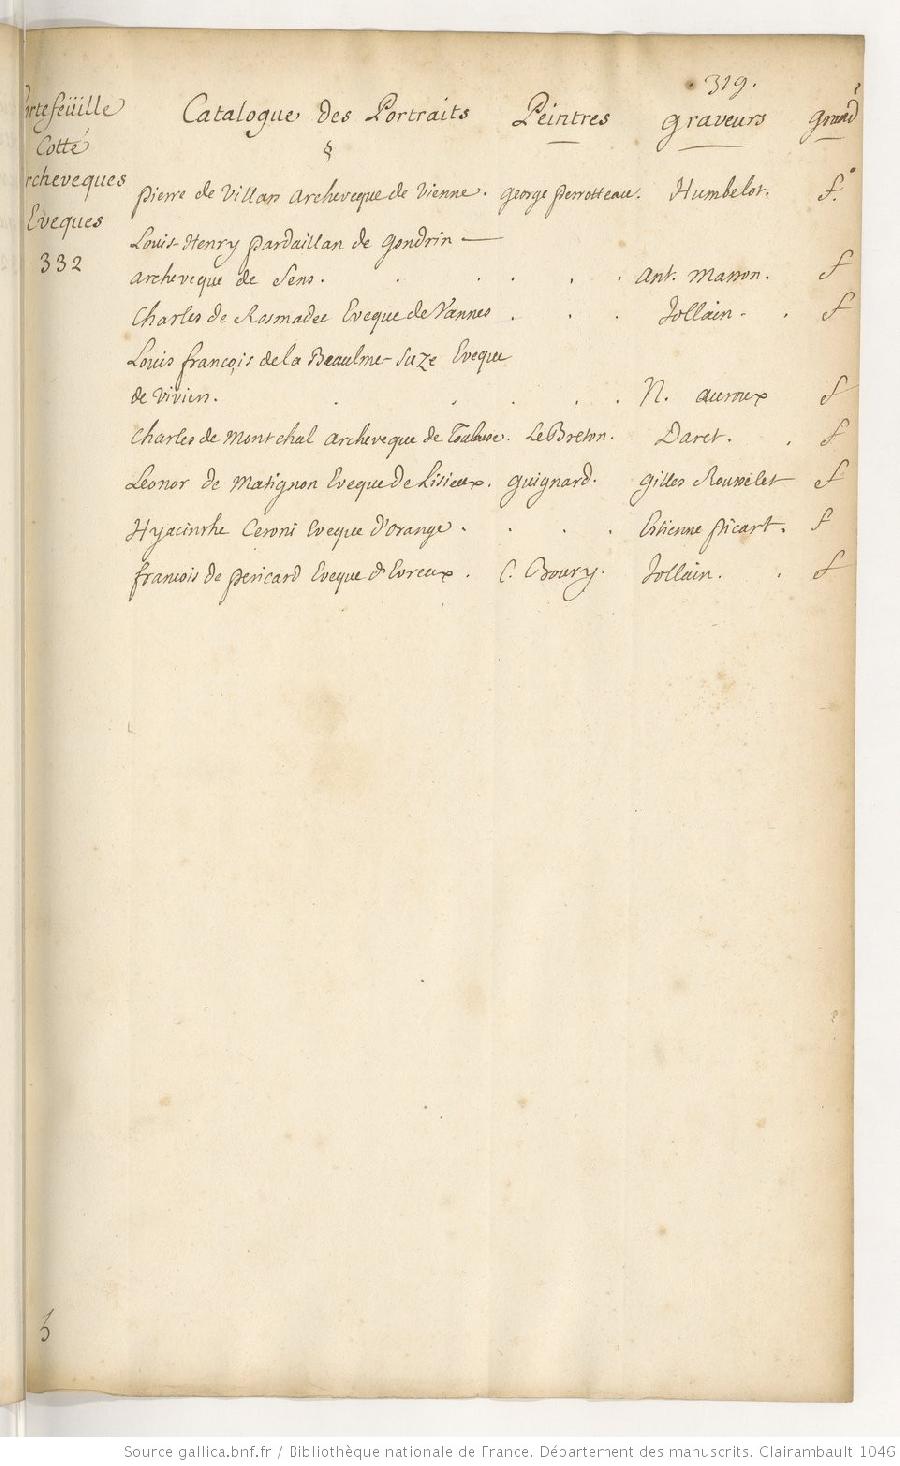 319.
rtefeüille Catalogue des Portraits Peintres graveurs grandr
Cotté §
rcheveques
Eveques
332
pierre de Villars Archeveque de Vienne. george perrotteau. Humbelot. f.°
Louis-Henry pardaillan de gondrin —
archeveque de Sens. . . . . . Ant. Masson. f
Charles de Rosmadec Eveque de Vannes . . . Jollain. . f
Louis françois de la Beaulme-Suze Eveque
de Vivien. . . . . . N. auroux f
Charles de Montchal archeveque de Toulouse. Le Breton. Daret. . f
Leonor de Matignon Eveque de Lisieux. guignard. gilles Rousselet f
Hyacinthe Ceroni Eveque d'orange. . . . Estienne picart. f
francois de pericard Eveque d'Evreux. C. Boury. Jollain. . f
6
Source gallica.bnf.fr / Bibliothèque nationale de France. Département des manuscrits. Clairambault 1046